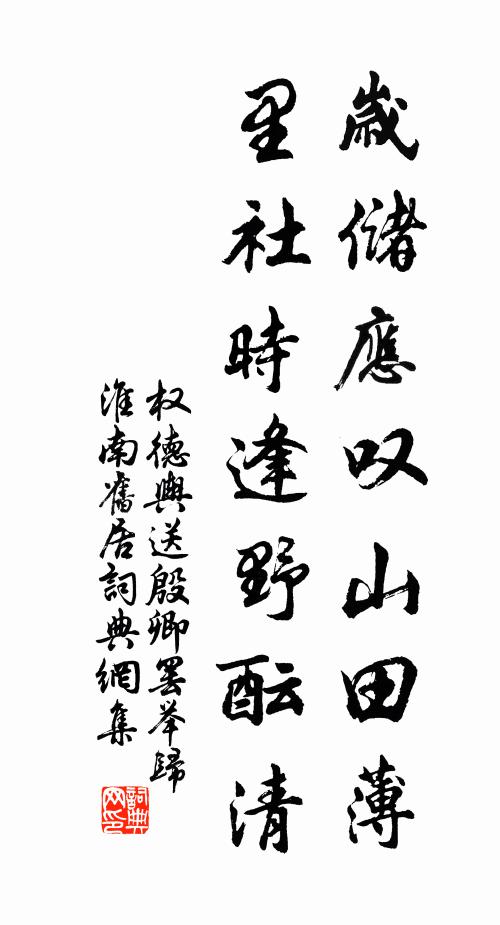 歲儲應叹山田薄
里社時逢野酝清
权德輿送殷卿罢举歸
淮南舊居詞典網集
詞典
网印